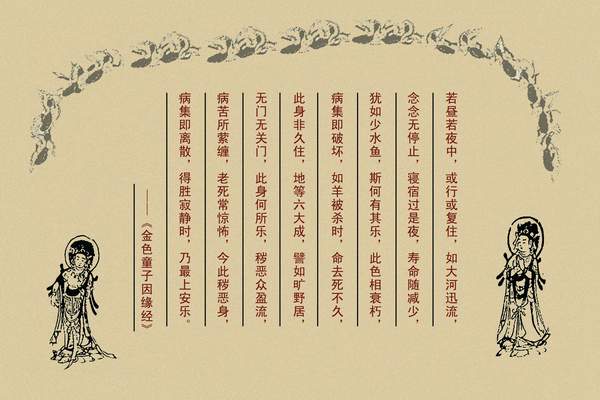 若昼若夜中，或行或复住，如大河迅流，
念念无停止，寝宿过是夜，寿命随减少，
犹如少水鱼，斯何有其乐，此色相衰朽，
病集即破坏，如羊被杀时，命去死不久，
此身非久住，地等六大成，譬如旷野居，
无门无关门，此身何所乐，秽恶众盈流，
病苦所萦缠，老死常惊怖，今此秽恶身，
病集即离散，得胜寂静时，乃最上安乐。
——《金色童子因缘经》